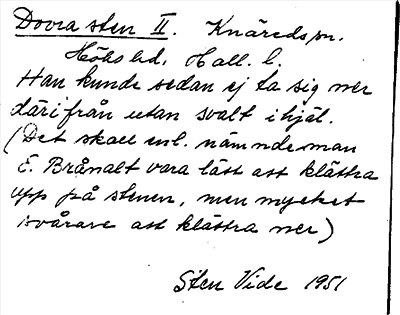 Dovra sten II. Knäreds sn.
Höks hd. Hall. l.
Han kunde sedan ej ta sig ner
därifrån utan svalt ihjäl.
(Det skall enl. nämndeman
E. Brånalt vara lätt att klättra
upp på stenen, men mycket
svårare att klättra ner)
Sten Vide 1951